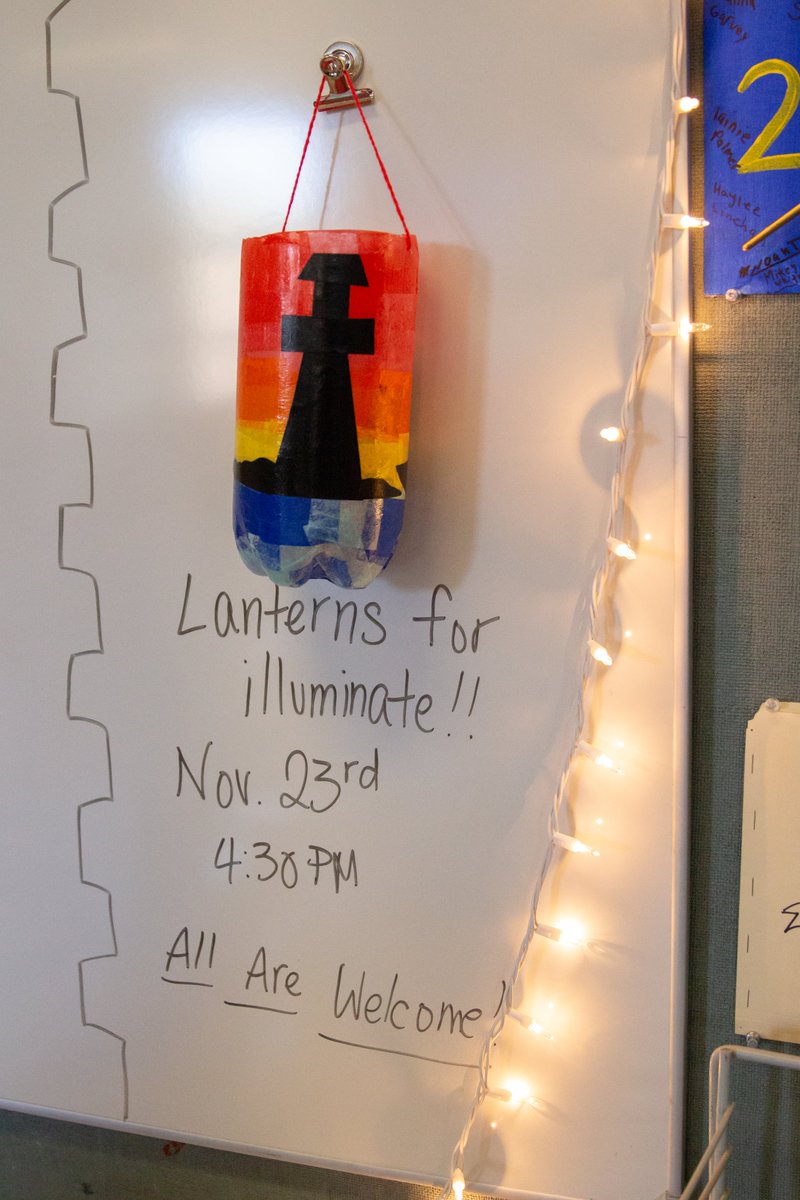 Lanterns for
illuminate!!
Nov. 23rd
4:30 PM
All Are Welcome!
Garvey
2
Palmer
Haylee